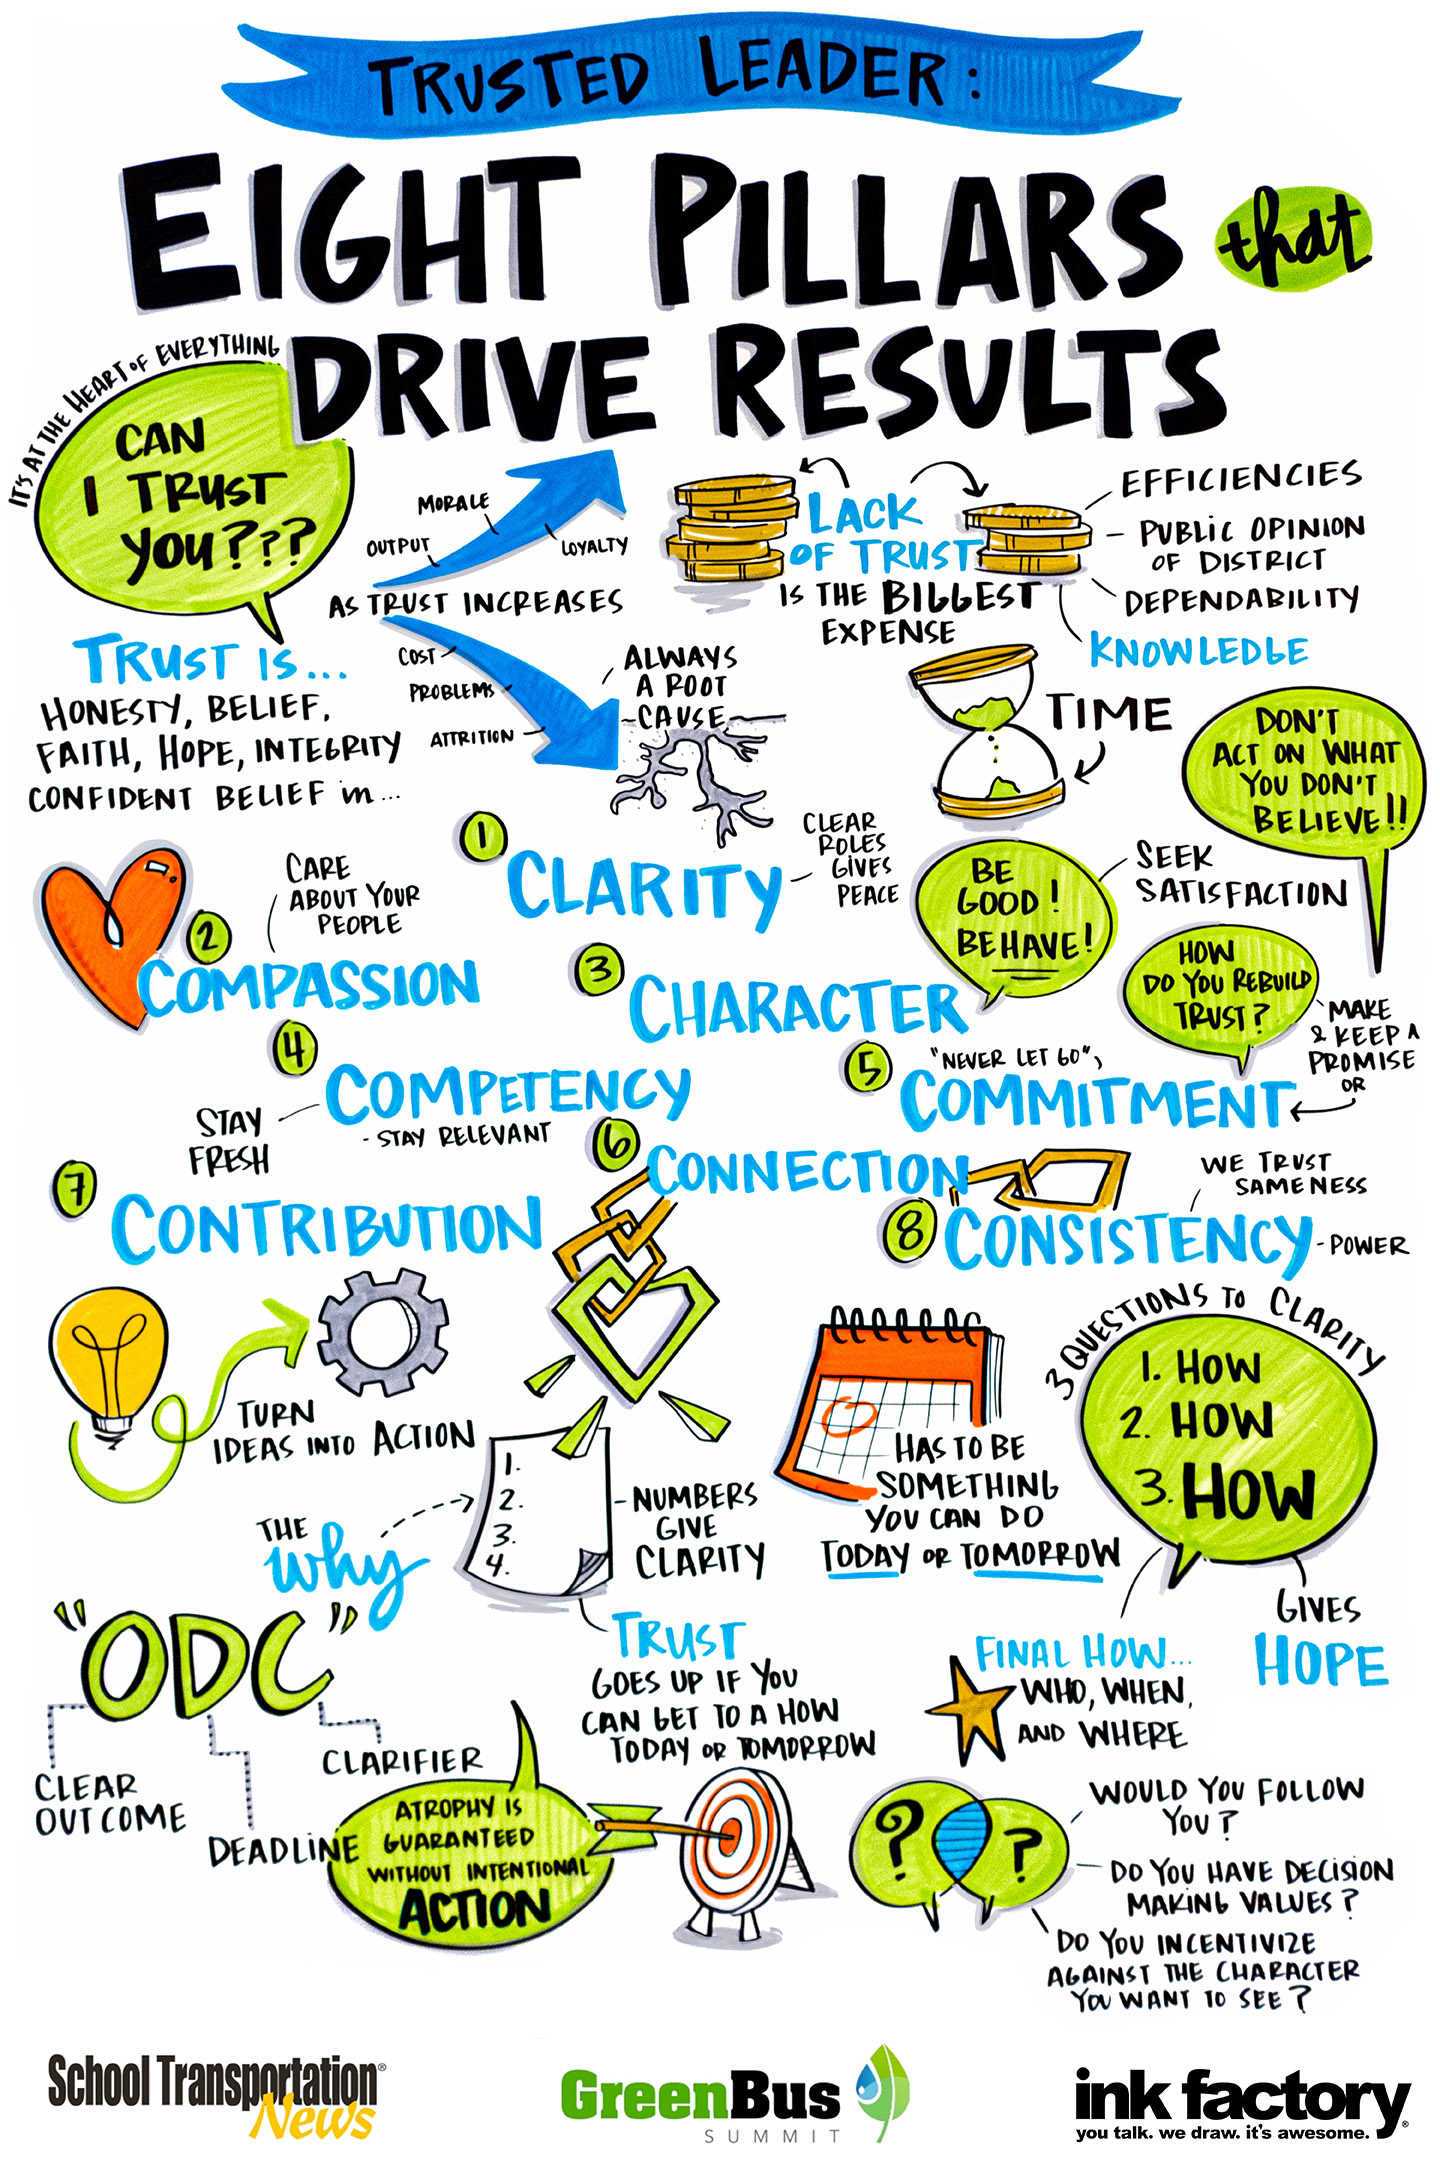 TRUSTED LEADER:
EIGHT PILLARS that
DRIVE RESULTS
IT'S AT THE HEART OF EVERYTHING
CAN
I TRUST
YOU???
TRUST IS...
HONESTY, BELIEF,
FAITH, HOPE, INTEGRITY
CONFIDENT BELIEF in...
MORALE
OUTPUT
LOYALTY
AS TRUST INCREASES
COST
PROBLEMS
ATTRITION
ALWAYS
A ROOT
CAUSE
LACK
OF TRUST
IS THE BIGGEST
EXPENSE
EFFICIENCIES
- PUBLIC OPINION
OF DISTRICT
DEPENDABILITY
KNOWLEDGE
TIME
DON'T
ACT ON WHAT
YOU DON'T
BELIEVE!!
1
CLARITY
CLEAR
ROLES
GIVES
PEACE
CARE
ABOUT YOUR
PEOPLE
2
COMPASSION
3
CHARACTER
BE
GOOD!
BEHAVE!
SEEK
SATISFACTION
HOW
DO YOU REBUILD
TRUST?
MAKE
& KEEP A
PROMISE
OR
4
COMPETENCY
STAY
FRESH
- STAY RELEVANT
5
"NEVER LET GO",
COMMITMENT
6
CONNECTION
7
CONTRIBUTION
WE TRUST
SAMENESS
8
CONSISTENCY
- POWER
TURN
IDEAS INTO ACTION
THE
why
1.
2.
3.
4.
- NUMBERS
GIVE
CLARITY
HAS TO BE
SOMETHING
YOU CAN DO
TODAY OR TOMORROW
3 QUESTIONS TO CLARITY
1. HOW
2. HOW
3. HOW
GIVES
HOPE
FINAL HOW...
WHO, WHEN,
AND WHERE
TRUST
GOES UP IF YOU
CAN GET TO A HOW
TODAY OR TOMORROW
"ODC"
CLEAR
OUTCOME
DEADLINE
CLARIFIER
ATROPHY IS
GUARANTEED
WITHOUT INTENTIONAL
ACTION
?
?
WOULD YOU FOLLOW
YOU?
DO YOU HAVE DECISION
MAKING VALUES?
DO YOU INCENTIVIZE
AGAINST THE CHARACTER
YOU WANT TO SEE?
School Transportation®
News
GreenBus
SUMMIT
ink factory®
you talk. we draw. it's awesome.